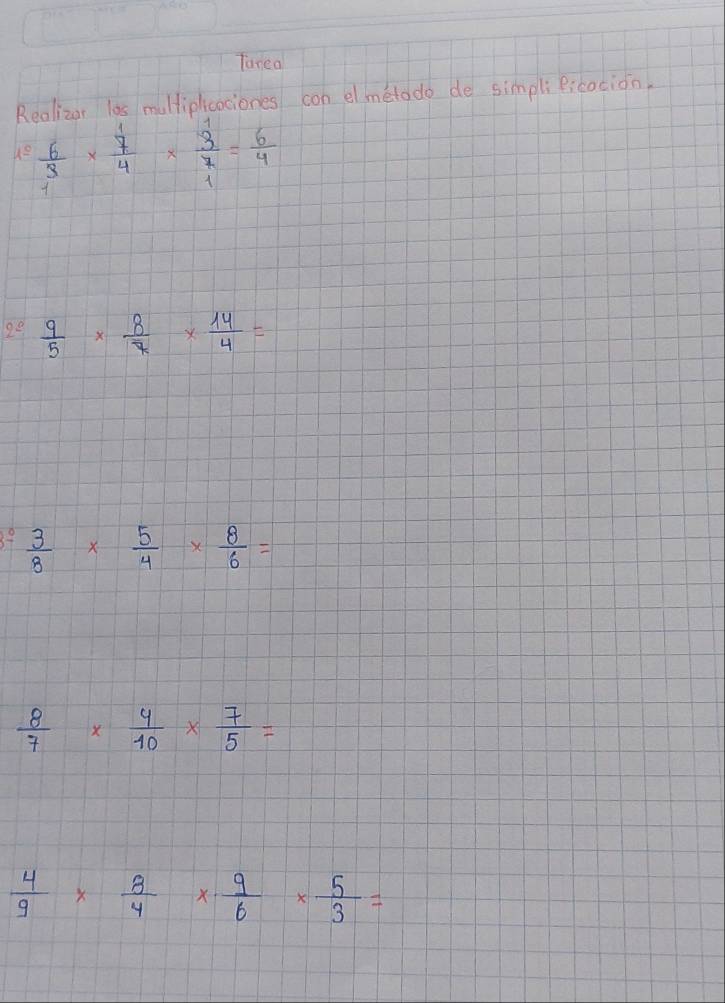 Tarea
Realizar las multiplicaciones con el método de simplificación.
1º 6/3 x 7/4 x 3/7 = 6/4
1 1 1 1
2º 9/5 x 8/7 x 14/4 =
3º 3/8 x 5/4 x 8/6 =
8/7 x 4/10 x 7/5 =
4/9 x 8/4 x 9/6 x 5/3 =